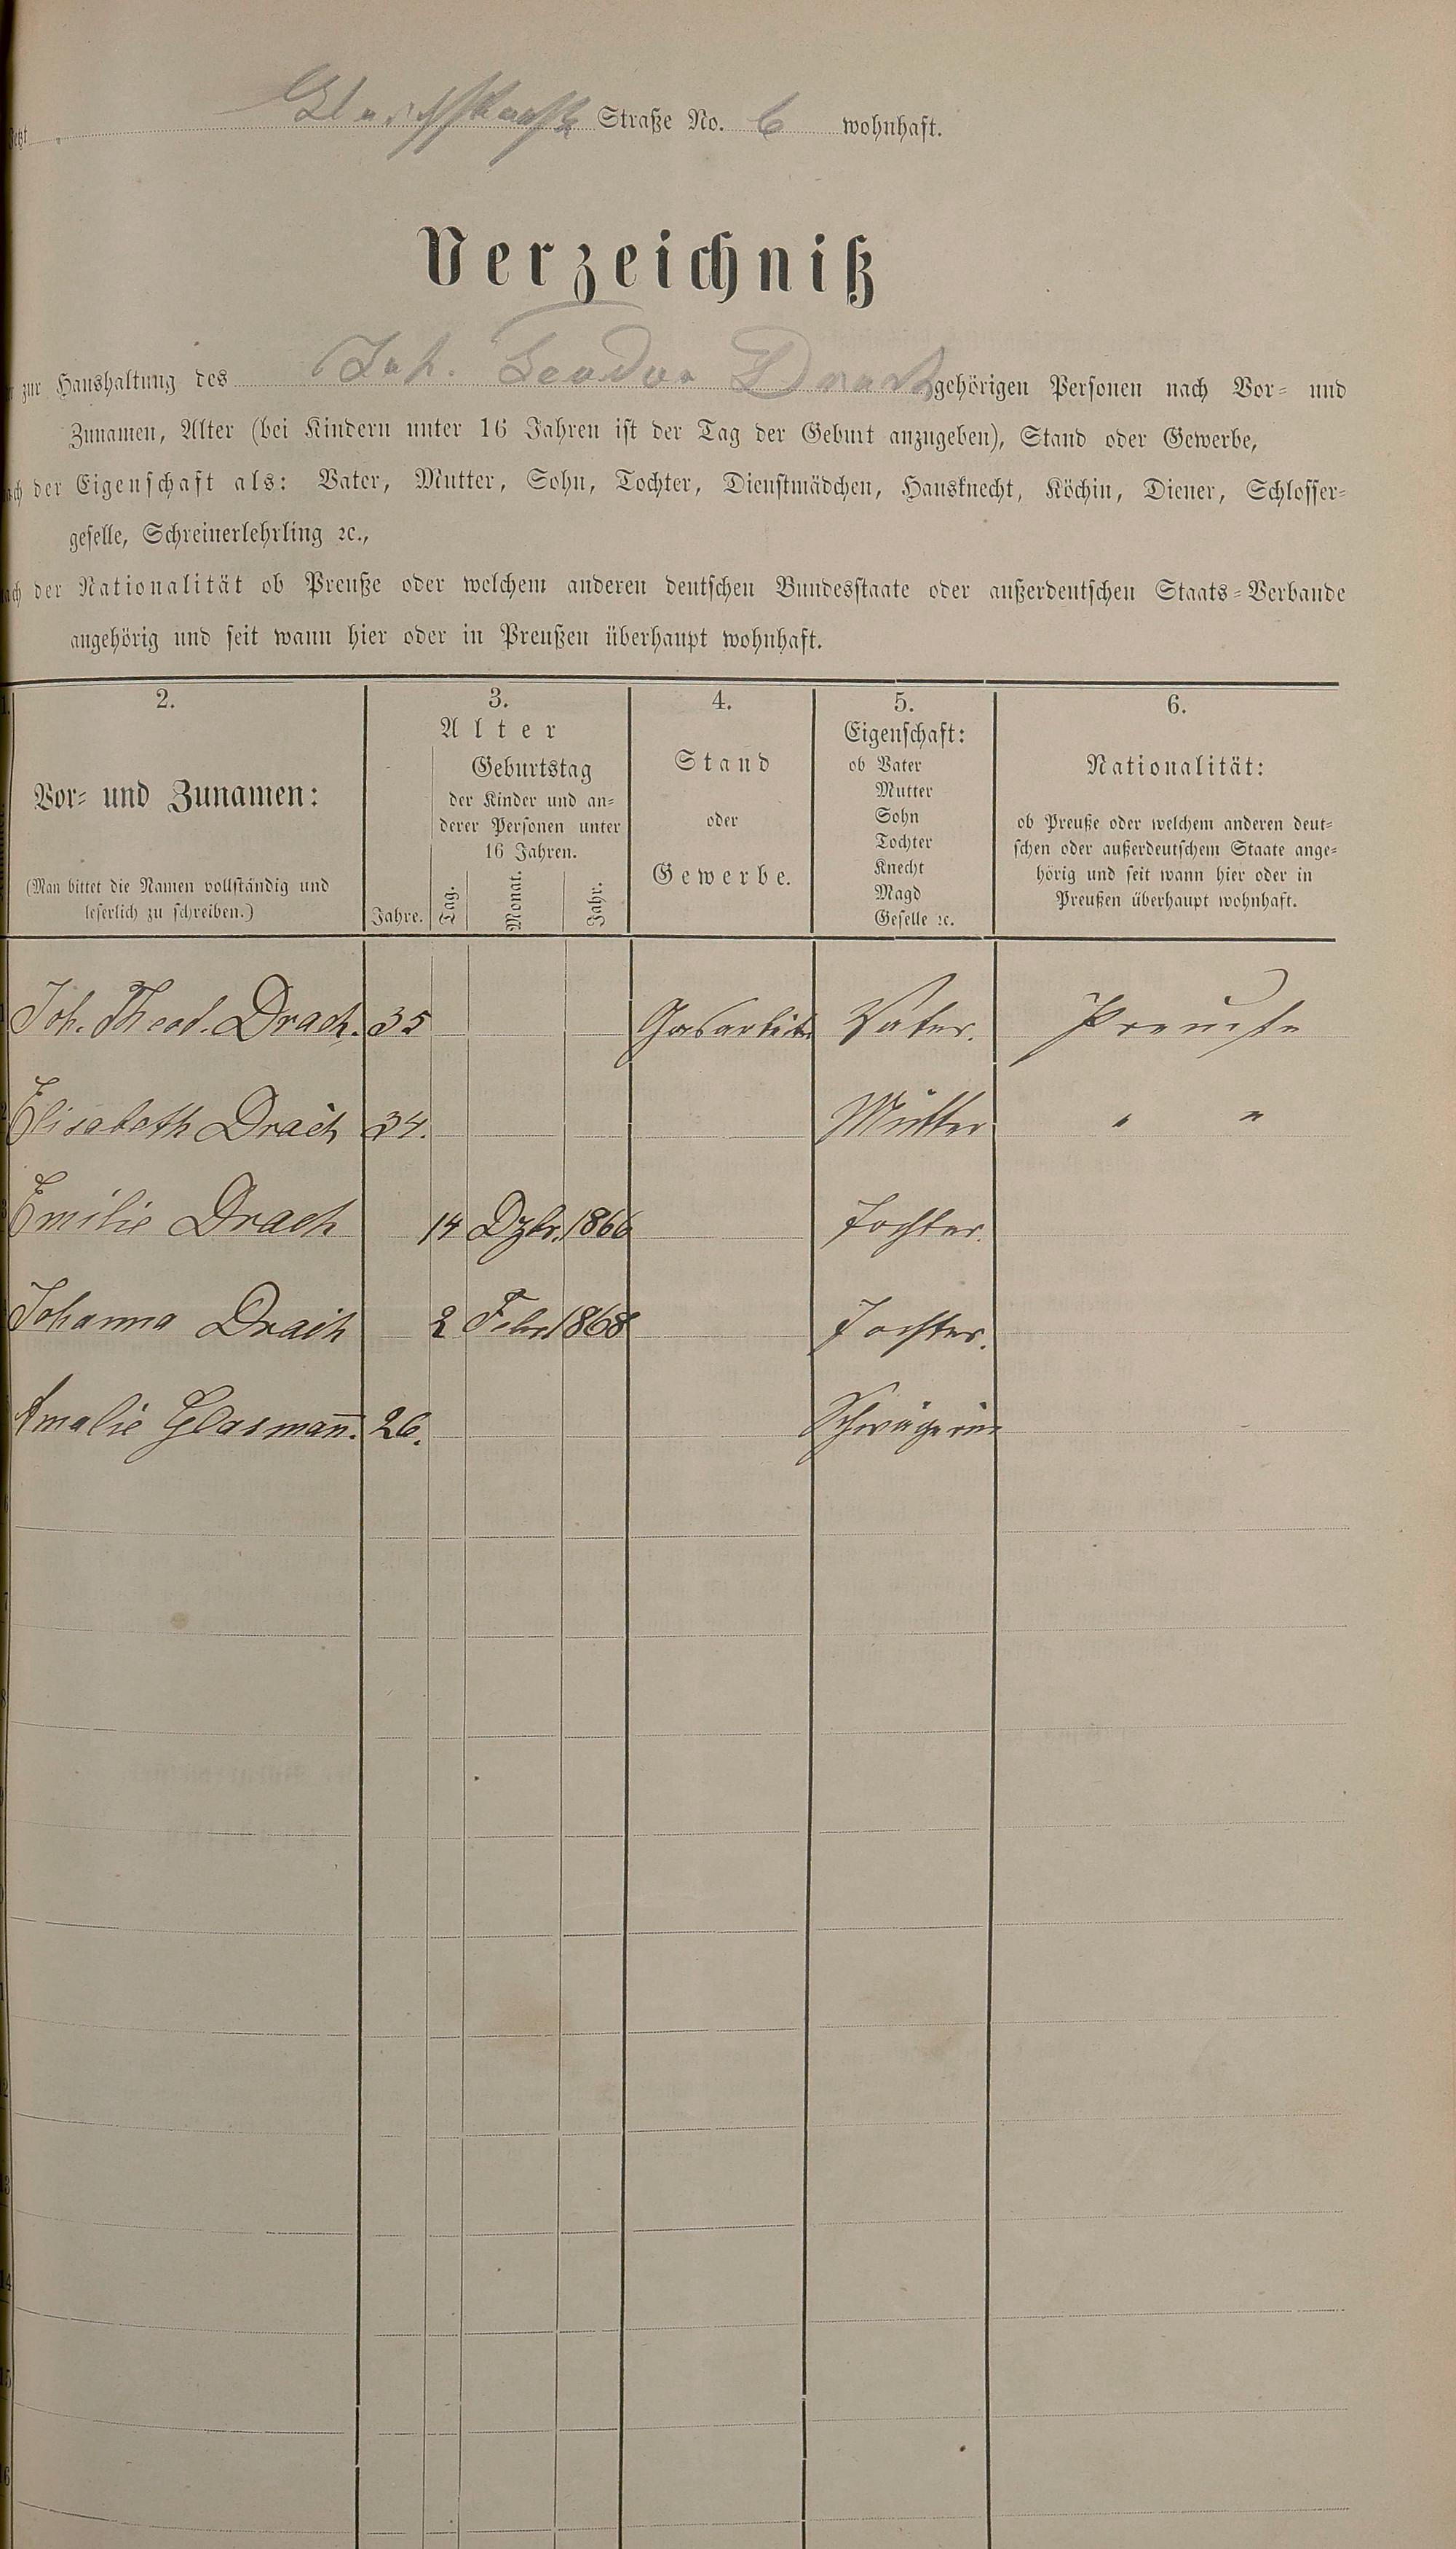 Straße No. 6 wohnhaft.
Verzeichniß
zur Haushaltung des Joh. Teodor Drach gehörigen Personen nach Vor- und
Zunamen, Alter (bei Kindern unter 16 Jahren ist der Tag der Geburt anzugeben), Stand oder Gewerbe,
der Eigenschaft als: Vater, Mutter, Sohn, Tochter, Dienstmädchen, Hausknecht, Köchin, Diener, Schlosser-
geselle, Schreinerlehrling ꝛc.,
der Nationalität ob Preuße oder welchem anderen deutschen Bundesstaate oder außerdeutschen Staats-Verbande
angehörig und seit wann hier oder in Preußen überhaupt wohnhaft.
2.
Vor- und Zunamen:
(Man bittet die Namen vollständig und
leserlich zu schreiben.)
3.
Alter
Jahre.
Geburtstag
der Kinder und an-
derer Personen unter
16 Jahren.
Tag.
Monat.
Jahr.
4.
Stand
oder
Gewerbe.
5.
Eigenschaft:
ob Vater
Mutter
Sohn
Tochter
Knecht
Magd
Geselle ꝛc.
6.
Nationalität:
ob Preuße oder welchem anderen deut-
schen oder außerdeutschem Staate ange-
hörig und seit wann hier oder in
Preußen überhaupt wohnhaft.
Joh. Theod. Drach. 35 Gasarbeiter Vater. Preuße
Elisabeth Drach 34. Mutter " "
Emilie Drach 14 Dzbr. 1866 Tochter.
Johanna Drach 2 Febr 1868 Tochter.
Amalie Glasman̅. 26. Schwägerin